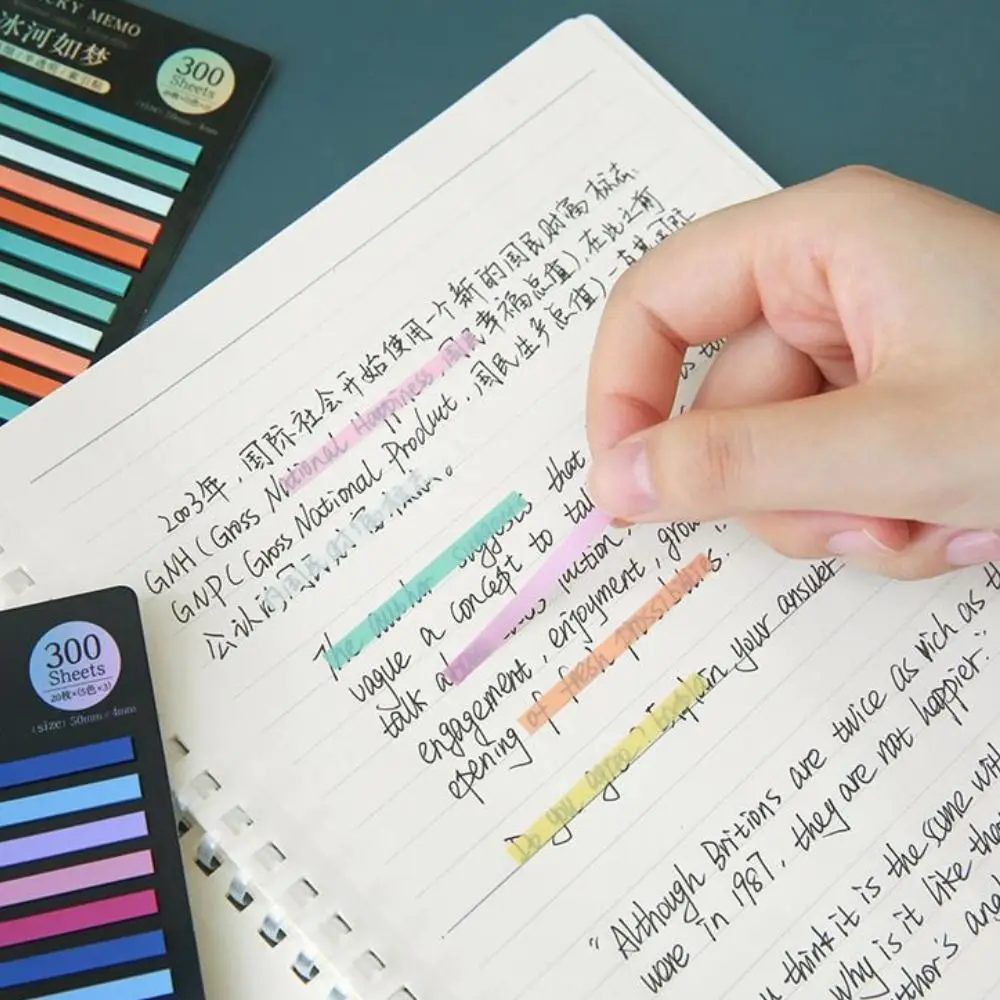 KY MEMO
冰河如梦
300
Sheets
2003年,国际社会开始使用一个新的国民财富标志.
GNH(Gross National Happiness,国民幸福总值),在此之前
GNP(Gross National Product,国民生产总值)一直是
公认的国民财富标志。
The author suggests that
vague a concept to
talk
engagement, enjoyment,
opening of fresh possibilities.
Do you agree? Explain your answer
300
Sheets
20枚×(5色×3)
(size) 50mm×4mm
"Although Britions are twice as rich as
ware in 1987, they are not happier."
think it is the same with
Why is it like